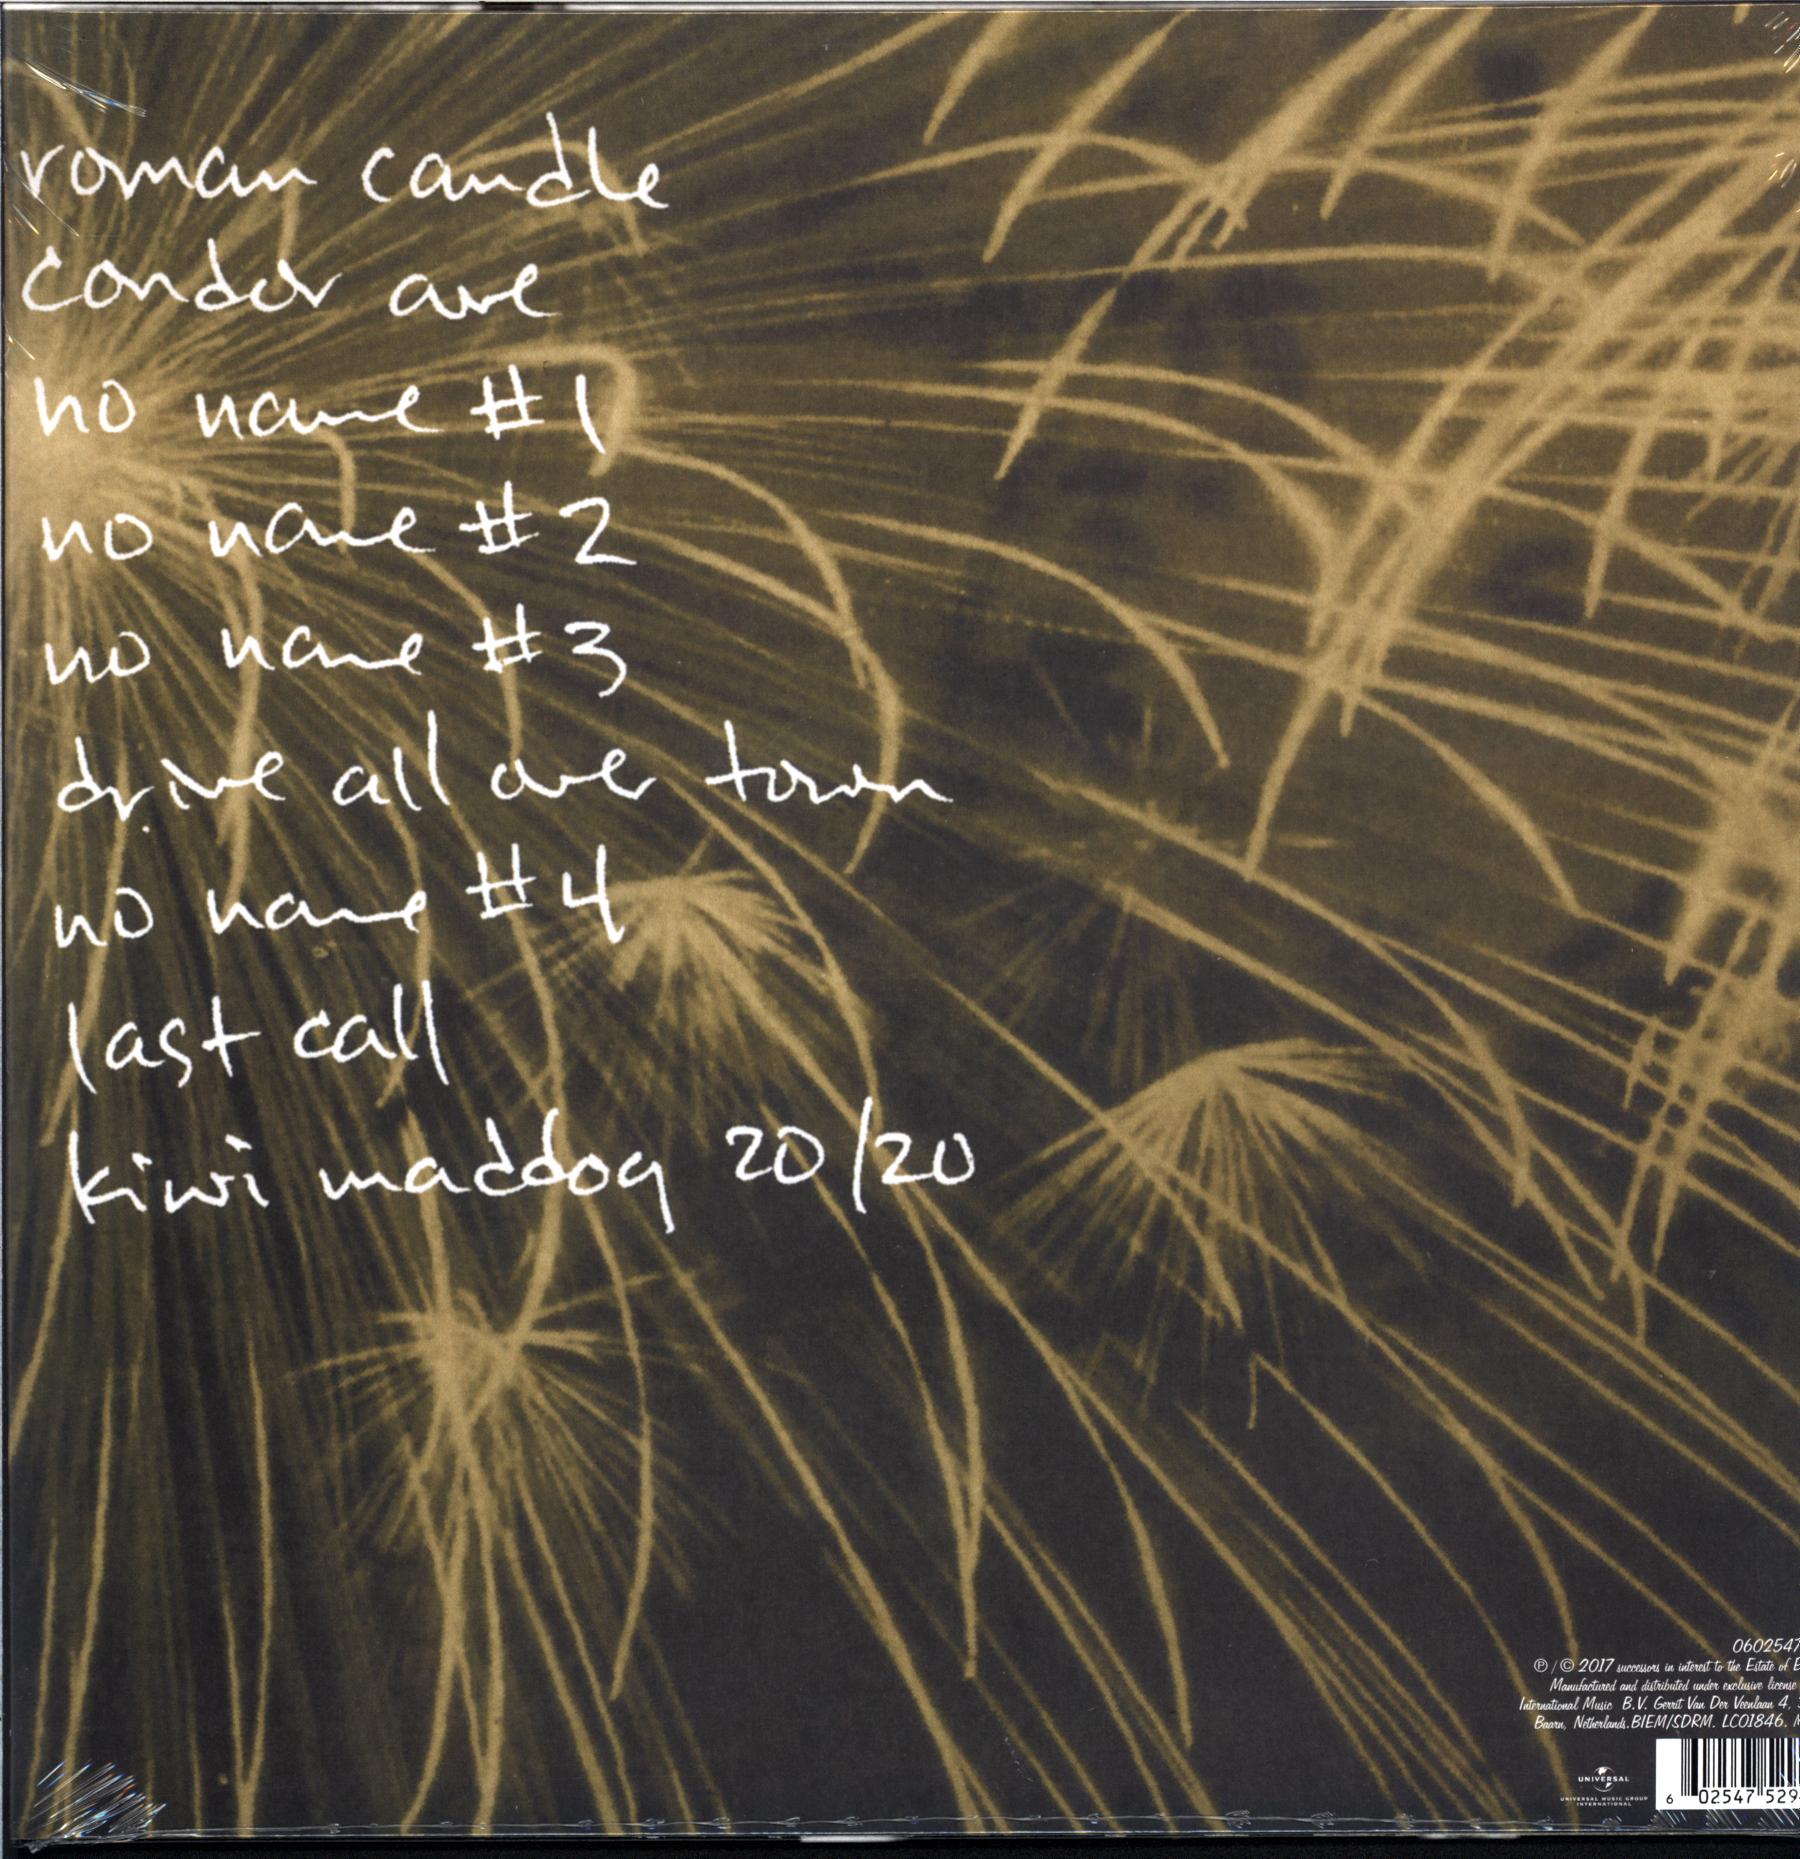 roman candle
condor ave
no name #1
no name #2
no name #3
drive all over town
no name #4
last call
kiwi maddog 20/20
0602547
℗ / © 2017 successors in interest to the Estate of E
Manufactured and distributed under exclusive license
International Music B.V. Gerrit Van Der Veenlaan 4,
Baarn, Netherlands. BIEM/SDRM. LC01846.
UNIVERSAL
UNIVERSAL MUSIC GROUP
INTERNATIONAL
6 02547 529